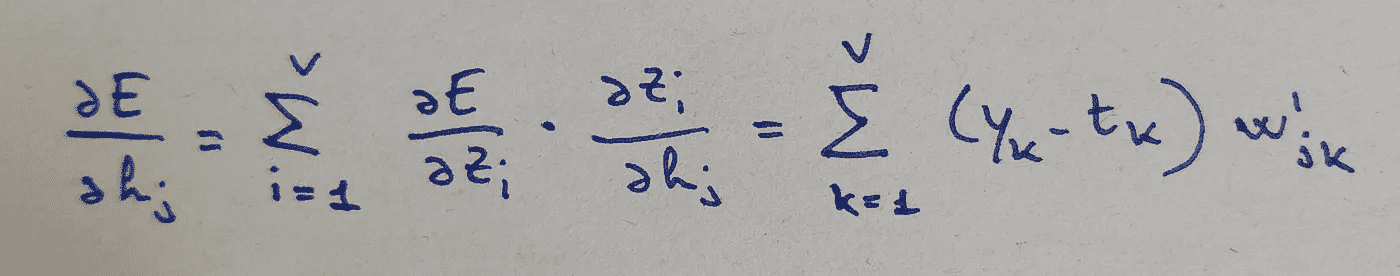 ∂E/∂h_j = ∑_{i=1}^{V} ∂E/∂z_i · ∂z_i/∂h_j = ∑_{k=1}^{V} (y_k - t_k) w'_{jk}